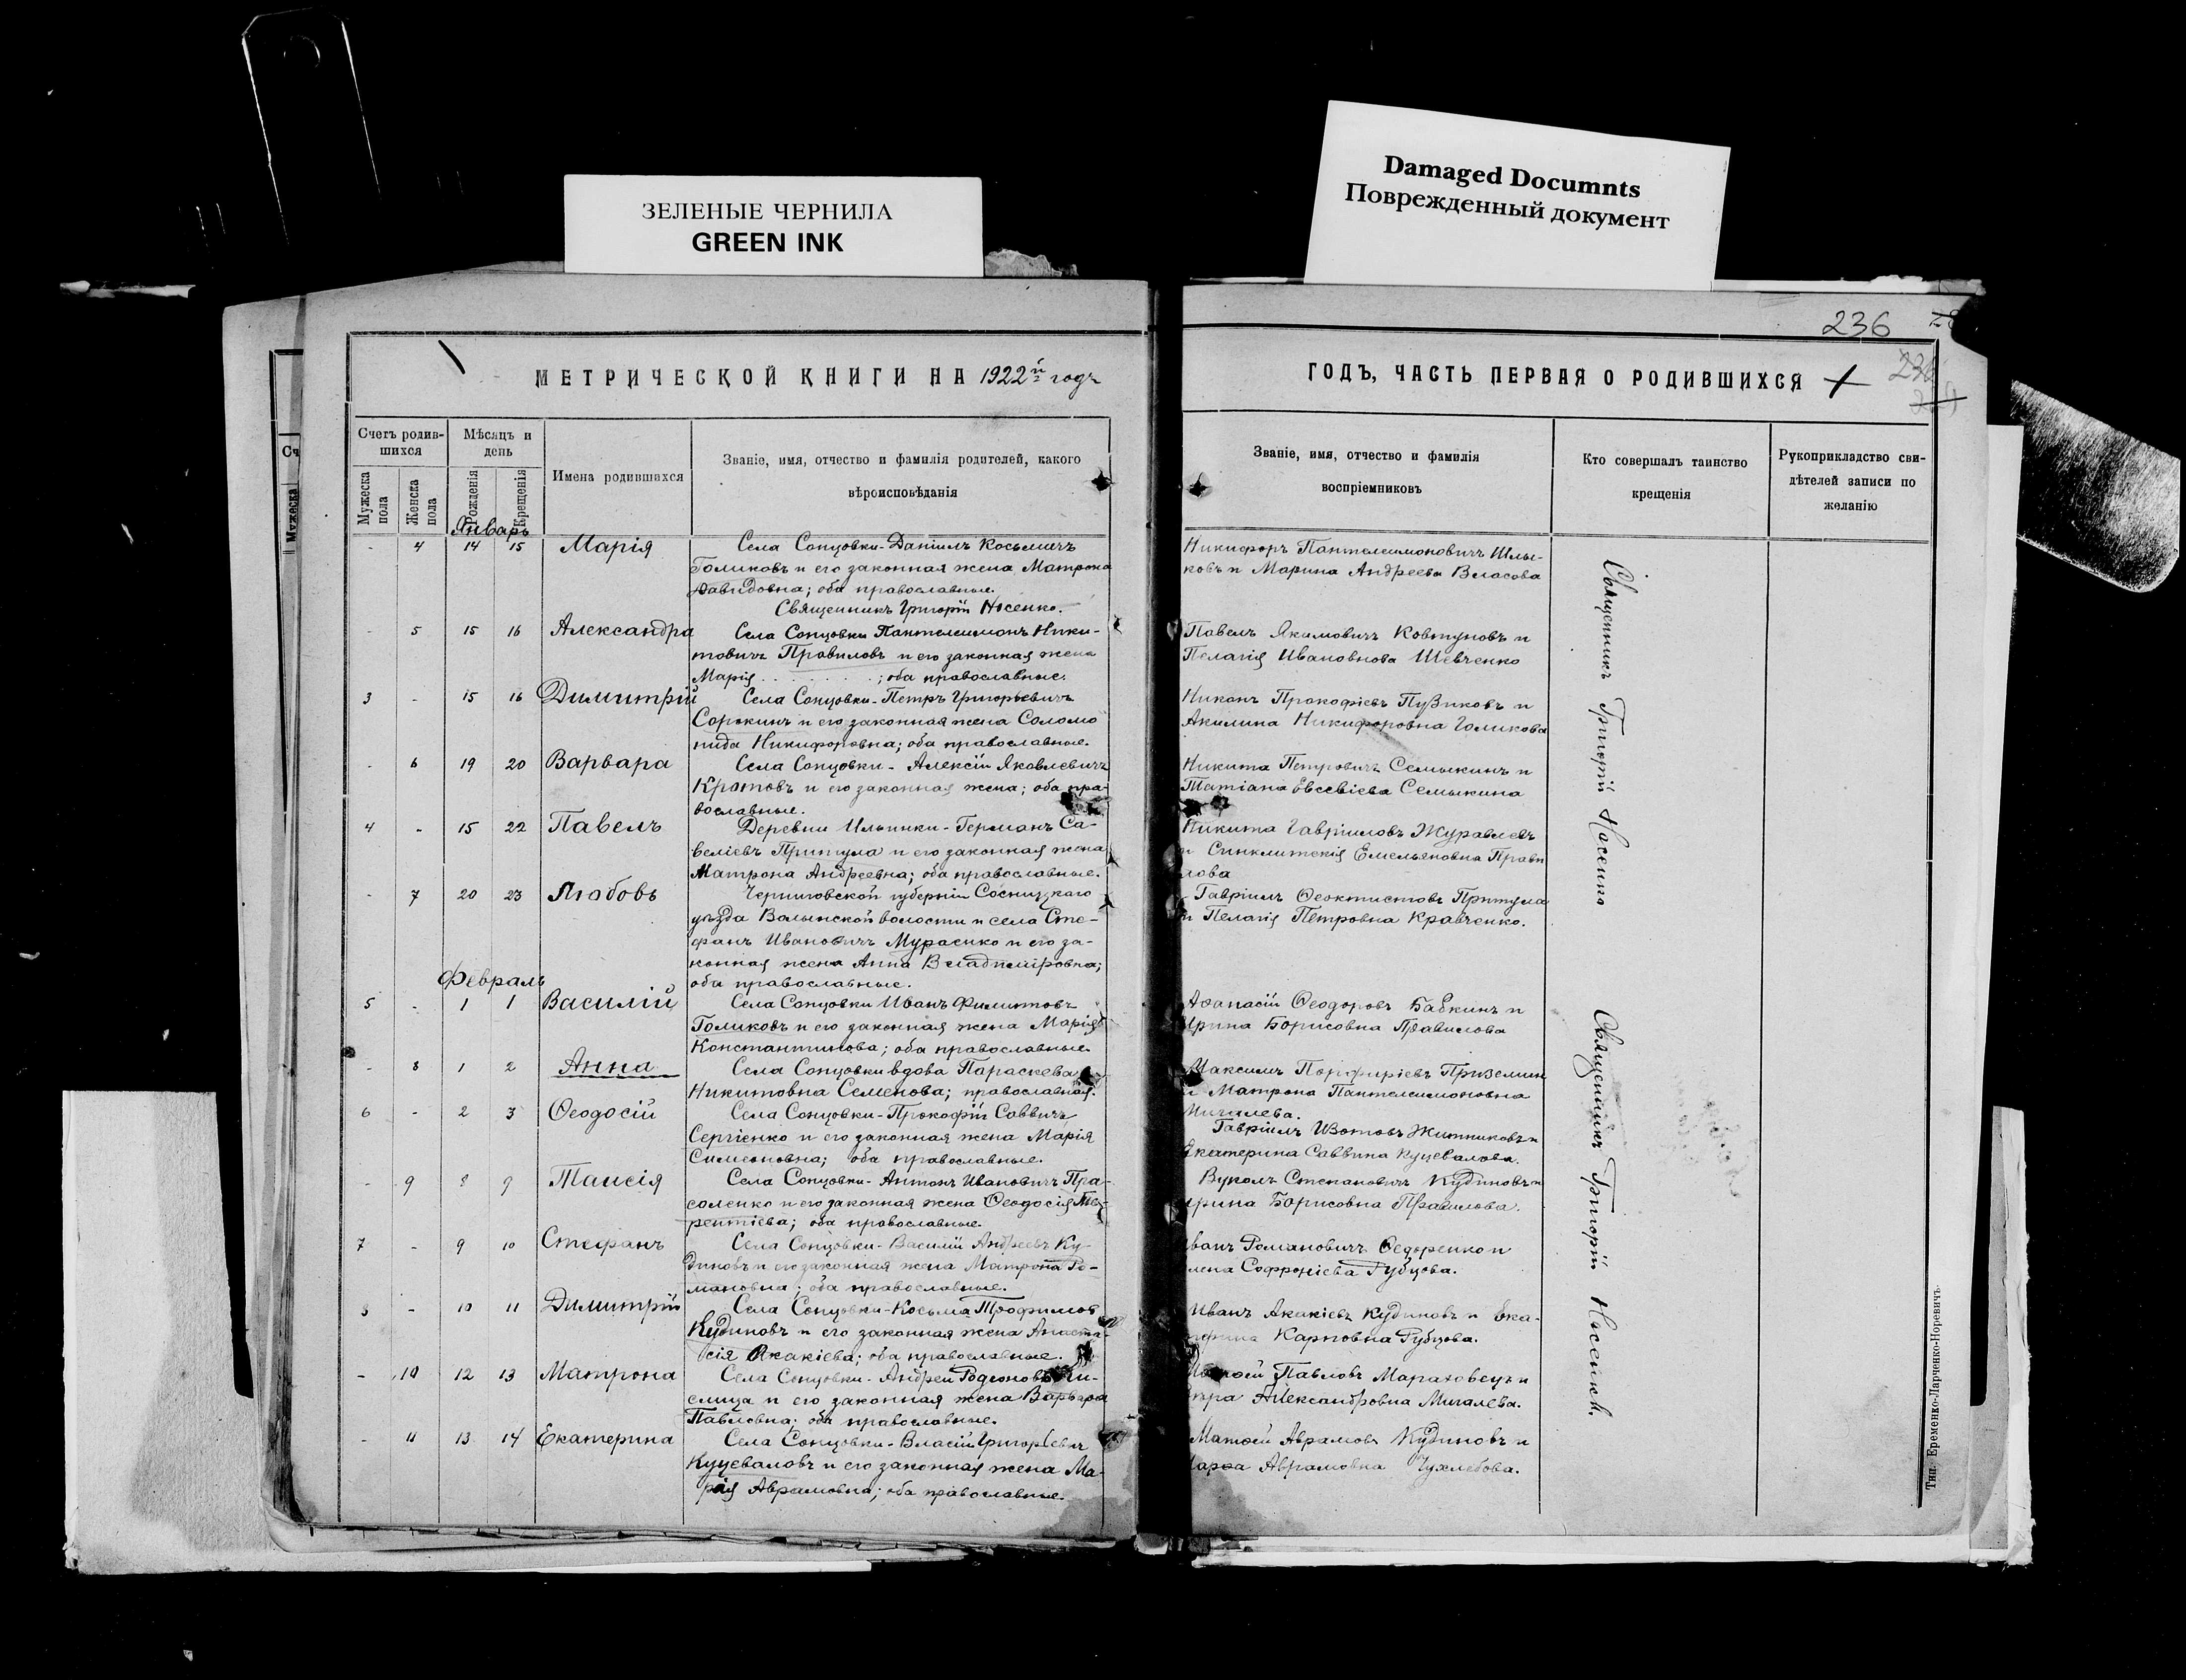 ЗЕЛЕНЫЕ ЧЕРНИЛА
GREEN INK
Damaged Documnts
Поврежденный документ
236
МЕТРИЧЕСКОЙ КНИГИ НА 1922й годъ
ГОДЪ, ЧАСТЬ ПЕРВАЯ О РОДИВШИХСЯ
Счетъ родив-
шихся
Мужеска
пола
Женска
пола
Мѣсяцъ и
день
Рожденія
Крещенія
Имена родившихся
Званіе, имя, отчество и фамилія родителей, какого
вѣроисповѣданія
Званіе, имя, отчество и фамилія
воспріемниковъ
Кто совершалъ таинство
крещенія
Рукоприкладство сви-
дѣтелей записи по
желанію
Январь
- 4 14 15 Марія
Села Сонцовки - Даніилъ Косьмичъ
Голиковъ и его законная жена Матрона
Давидовна; оба православные.
Священникъ Григорій Носенко.
Никифоръ Пантелеимоновичъ Шлы-
ковъ и Марина Андреева Власова
- 5 15 16 Александра
Села Сонцовки Пантелеимонъ Ники-
товичъ Правиловъ и его законная жена
Марія . . . . . . . ; оба православные.
Павелъ Якимовичъ Ковтуновъ и
Пелагія Ивановнова Шевченко
3 - 15 16 Димитрій
Села Сонцовки - Петръ Григорьевичъ
Сорокинъ и его законная жена Соломо
нида Никифоровна; оба православные.
Никонъ Прокофіевъ Пузиковъ и
Акилина Никифоровна Голикова
- 6 19 20 Варвара
Села Сонцовки - Алексій Яковлевичъ
Кротовъ и его законная жена; оба пра-
вославные.
Никита Петровичъ Семыкинъ и
Татіана Евсевіева Семыкина
4 - 15 22 Павелъ
Деревни Ильинки - Германъ Са-
веліевъ Притула и его законная жена
Матрона Андреевна; оба православные.
Никита Гавріиловъ Журавлевъ
и Синклитекія Емельяновна Прави
лова
- 7 20 23 Любовь
Черниговской губерніи Сосницкаго
уѣзда Волынской волости и села Сте-
фанъ Ивановичъ Мурасико и его за-
конная жена Анна Владиміровна;
оба православные.
Гавріилъ Ѳеоктистовъ Притула
и Пелагія Петровна Кравченко.
Священникъ Григорій Носенко
Февраль
5 - 1 1 Василій
Села Сонцовки Иванъ Филиповъ
Голиковъ и его законная жена Марія
Константинова; оба православные.
Аѳанасій Ѳеодоровъ Бабкинъ и
Ирина Борисовна Правилова
- 8 1 2 Анна
Села Сонцовки вдова Параскева
Никитовна Семенова; православная.
Максимъ Порфиріевъ Приземин
и Матрона Пантелеимоновна
Мигалева.
6 - 2 3 Ѳеодосій
Села Сонцовки - Прокофій Саввичъ
Сергіенко и его законная жена Марія
Симеоновна; оба православные.
Гавріилъ Изотовъ Житниковъ и
Екатерина Саввина Куцевалова.
- 9 8 9 Таисія
Села Сонцовки - Антонъ Ивановичъ Пра-
соленко и его законная жена Ѳеодосія Те-
рентіева; оба православные.
Вуколъ Степановичъ Кудиновъ и
ирина Борисовна Правилова.
7 - 9 10 Стефанъ
Села Сонцовки - Василій Андреевъ Ку-
диновъ и его законная жена Матрона Ро-
мановна; оба православные.
Иванъ Романовичъ Ѳедоренко и
лена Софроніева Губцова.
8 - 10 11 Димитрій
Села Сонцовки - Косьма Трофимовъ
Кудиновъ и его законная жена Анаста-
сія Акакіева; оба православные.
Иванъ Акакіевъ Кудиновъ и Ека-
Карповна Губцова.
- 10 12 13 Матрона
Села Сонцовки - Андрей Родіоновъ
слица и его законная жена Варвара
Павловна; оба православные.
Павловъ Мараховецъ и
Александровна Мигалева.
- 11 13 14 Екатерина
Села Сонцовки - Власій Григорьевичъ
Куцеваловъ и его законная жена Ма-
рія Аврамовна; оба православные.
Матѳей Аврамовъ Кудиновъ и
Марѳа Аврамовна Чухлебова.
Священникъ Григорій Носенко.
Тип. Еременко-Ларченко-Норевичъ